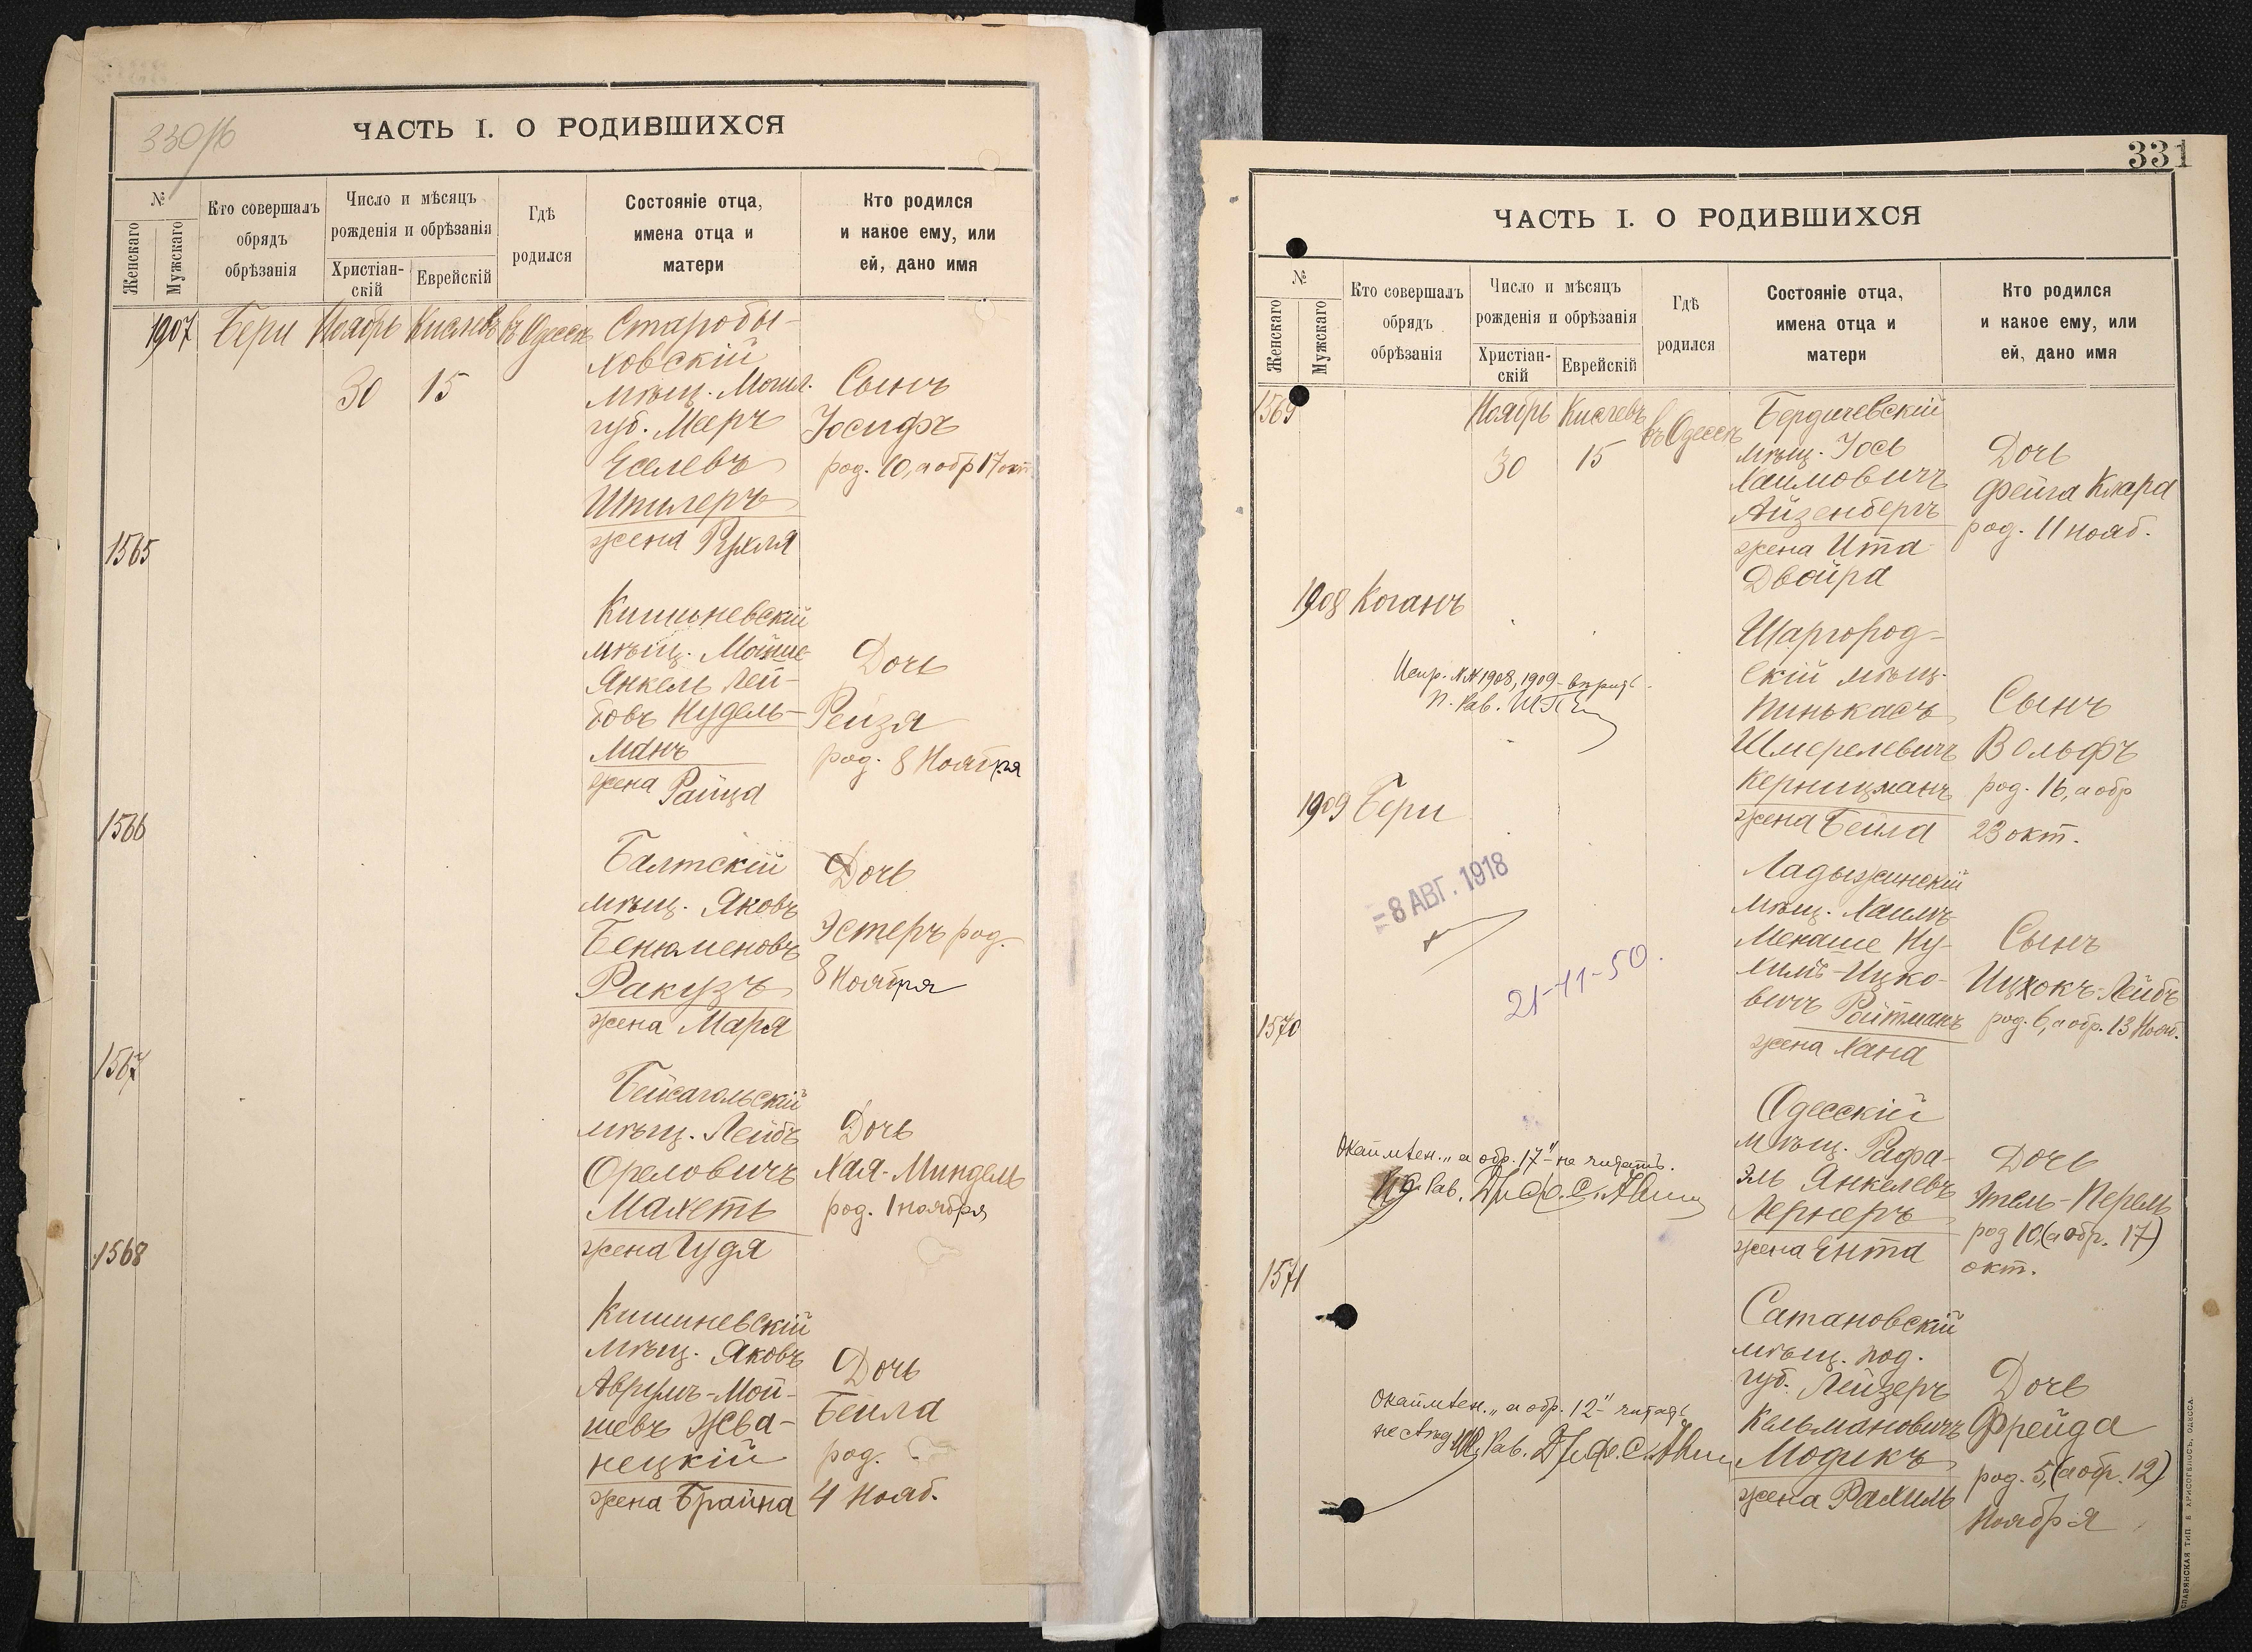 330/16
ЧАСТЬ I. О РОДИВШИХСЯ
№
Женскаго
Мужскаго
Кто совершалъ
обрядъ
обрѣзанія
Число и мѣсяцъ
рожденія и обрѣзанія
Христіан-
скій
Еврейскій
Гдѣ
родился
Состояніе отца,
имена отца и
матери
Кто родился
и какое ему, или
ей, дано имя
1907 Бери Ноябрь Кислевъ въ Одессѣ
30 15
Старобы-
ховскій
мѣщ. Могил.
губ. Мееръ
Еселевъ
Шпилеръ
жена Рухля
Сынъ
Іосифъ
род. 10, а обр 17 окт
1565
Кишиневскій
мѣщ. Мойше-
Янкель Лей-
бовъ Нудель-
манъ
жена Раица
Дочь
Рейзя
род. 8 Ноября
1566
Балтскій
мѣщ. Яковъ
Бенюменовъ
Ракузъ
жена Маря
Дочь
Эстеръ род.
8 Ноября
1567
Бейсагольскій
мѣщ. Лейбъ
Ореловичъ
Махетъ
жена Гудя
Дочь
Хая-Миндель
род. 1 ноября
1568
Кишиневскій
мѣщ. Яковъ
Аврумъ-Мой-
шевъ Жва-
нецкій
жена Брайна
Дочь
Бейла
род.
4 Нояб.
331
ЧАСТЬ I. О РОДИВШИХСЯ
№
Женскаго
Мужскаго
Кто совершалъ
обрядъ
обрѣзанія
Число и мѣсяцъ
рожденія и обрѣзанія
Христіан-
скій
Еврейскій
Гдѣ
родился
Состояніе отца,
имена отца и
матери
Кто родился
и какое ему, или
ей, дано имя
1569 Ноябрь Кислевъ въ Одессѣ
30 15
Бердичевскій
мѣщ. Іось
Хаимовичъ
Айзенбергъ
жена Ита
Двойра
Дочь
Фейга Клара
род. 11 нояб.
1908 Коганъ
Испр. №№ 1908, 1909 - вѣрить
П. Рав.
Шаргород-
скій мѣщ.
Пинькасъ
Шмерелевичъ
Керницманъ
жена Бейла
Сынъ
Вольфъ
род. 16, а обр
23 окт.
1909 Бери
Ладыжинскій
мѣщ. Хаимъ
Менаше Ну-
химъ-Ицко-
вичъ Ройтманъ
жена Хана
Сынъ
Ицхокъ-Лейбъ
род. 6, а обр. 13 Нояб.
8 АВГ. 1918
21-11-50.
1570
Одесскій
мѣщ. Рафа-
эль Янкелевъ
Лернеръ
жена Ента
Дочь
Этель-Перель
род 10, (а обр. 17)
окт.
Окаймлен. „а обр. 17" - не читать.
Рав.
1571
Сатановскій
мѣщ. под.
губ. Лейзеръ
Кельмановичъ
Модикъ
жена Рахиль
Дочь
Фрейда
род. 5, (а обр. 12)
Ноября
Окаймлен. „а обр. 12" читать
не слѣд. Рав.
СЛАВЯНСКАЯ ТИП. Е. ХРИСОГЕЛОСЪ, ОДЕССА.